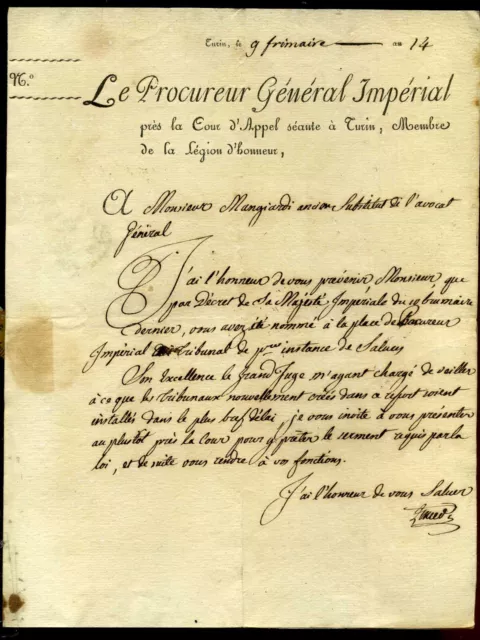 Turin, le 9 frimaire an 14
N.o
Le Procureur Général Impérial
près la Cour d'Appel séante à Turin, Membre
de la Légion d'honneur,
A Monsieur Mangiardi ancien Substitut de l'avocat
Général
J'ai l'honneur de vous prévenir Monsieur que
par Décret de Sa Majesté Impériale du 10 brumaire
dernier, vous avez été nommé à la place de Procureur
Impérial Tribunal de p.re instance de Saluces
Son Excellence le Grand Juge m'ayant chargé de veiller
à ce que les Tribunaux nouvellement créés dans ce resort soient
installés dans le plus bref délai, je vous invite à vous présenter
au plustôt près la Cour pour y prêter le serment requis par la
loi, et de suite vous rendre à vos fonctions.
J'ai l'honneur de vous Saluer